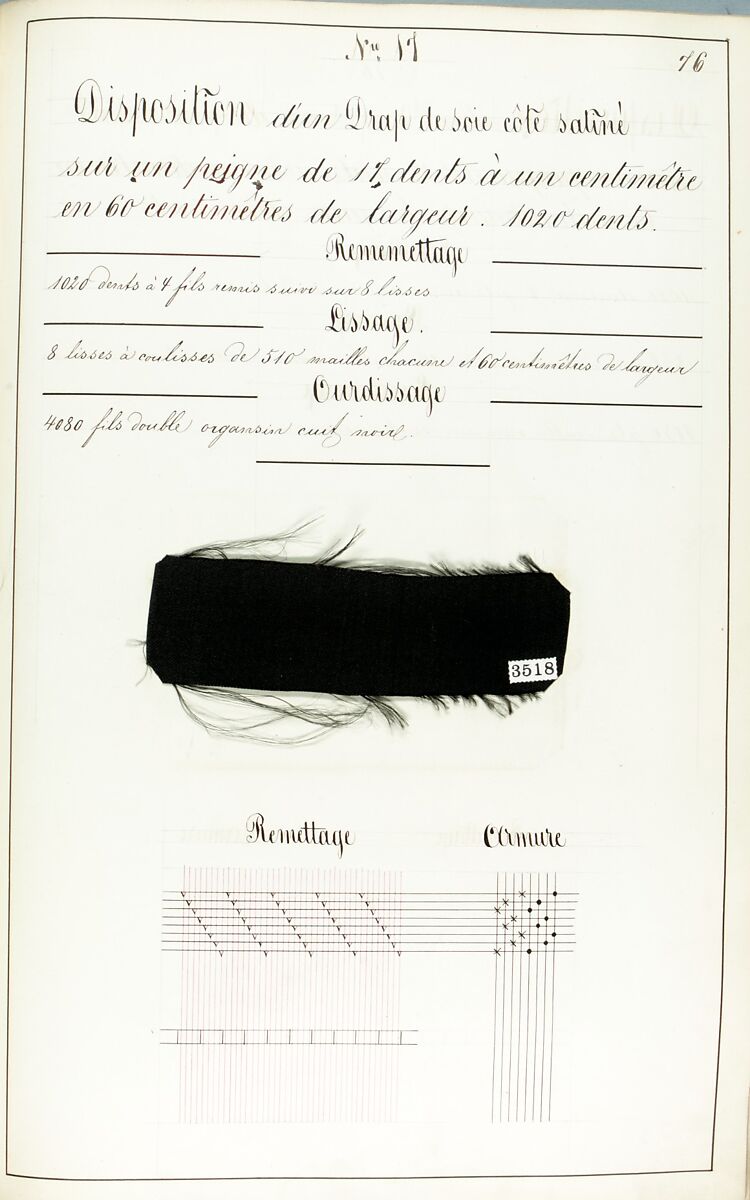 Nº 17
76
Disposition d'un Drap de soie côté satiné
sur un peigne de 17 dents à un centimêtre
en 60 centimêtres de largeur. 1020 dents.
Rememettage
1020 dents à 4 fils remis suivi sur 8 lisses
Lissage.
8 lisses à coulisses de 510 mailles chacune et 60 centimêtres de largeur
Ourdissage
4080 fils double organsin cuit noire.
3518
Remettage Armure